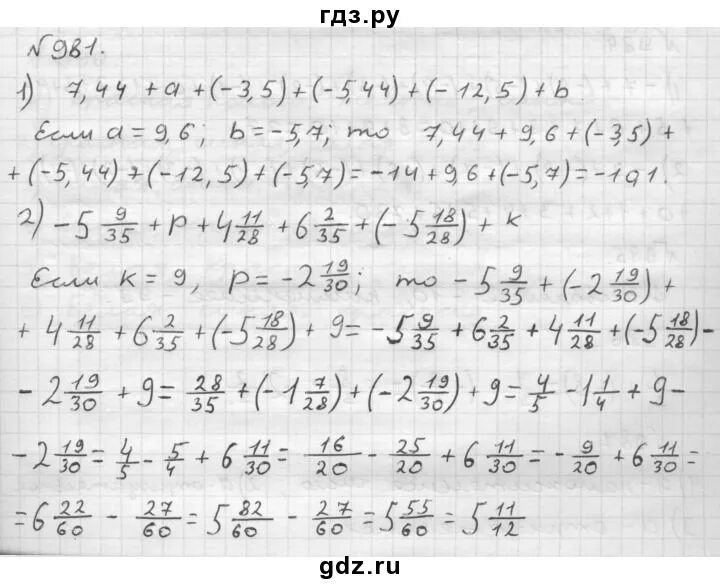 гдз.ру
№981.
1) 7,44 + a + (-3,5) + (-5,44) + (-12,5) + b
Если a = 9,6; b = -5,7; то 7,44 + 9,6 + (-3,5) +
+ (-5,44) + (-12,5) + (-5,7) = -14 + 9,6 + (-5,7) = -10,1.
2) -5 9/35 + p + 4 11/28 + 6 2/35 + (-5 18/28) + k
Если k = 9, p = -2 19/30; то -5 9/35 + (-2 19/30) +
+ 4 11/28 + 6 2/35 + (-5 18/28) + 9 = -5 9/35 + 6 2/35 + 4 11/28 + (-5 18/28) -
- 2 19/30 + 9 = 28/35 + (-1 7/28) + (-2 19/30) + 9 = 4/5 - 1 1/4 + 9 -
- 2 19/30 = 4/5 - 5/4 + 6 11/30 = 16/20 - 25/20 + 6 11/30 = - 9/20 + 6 11/30 =
= 6 22/60 - 27/60 = 5 82/60 - 27/60 = 5 55/60 = 5 11/12
gdz.ru